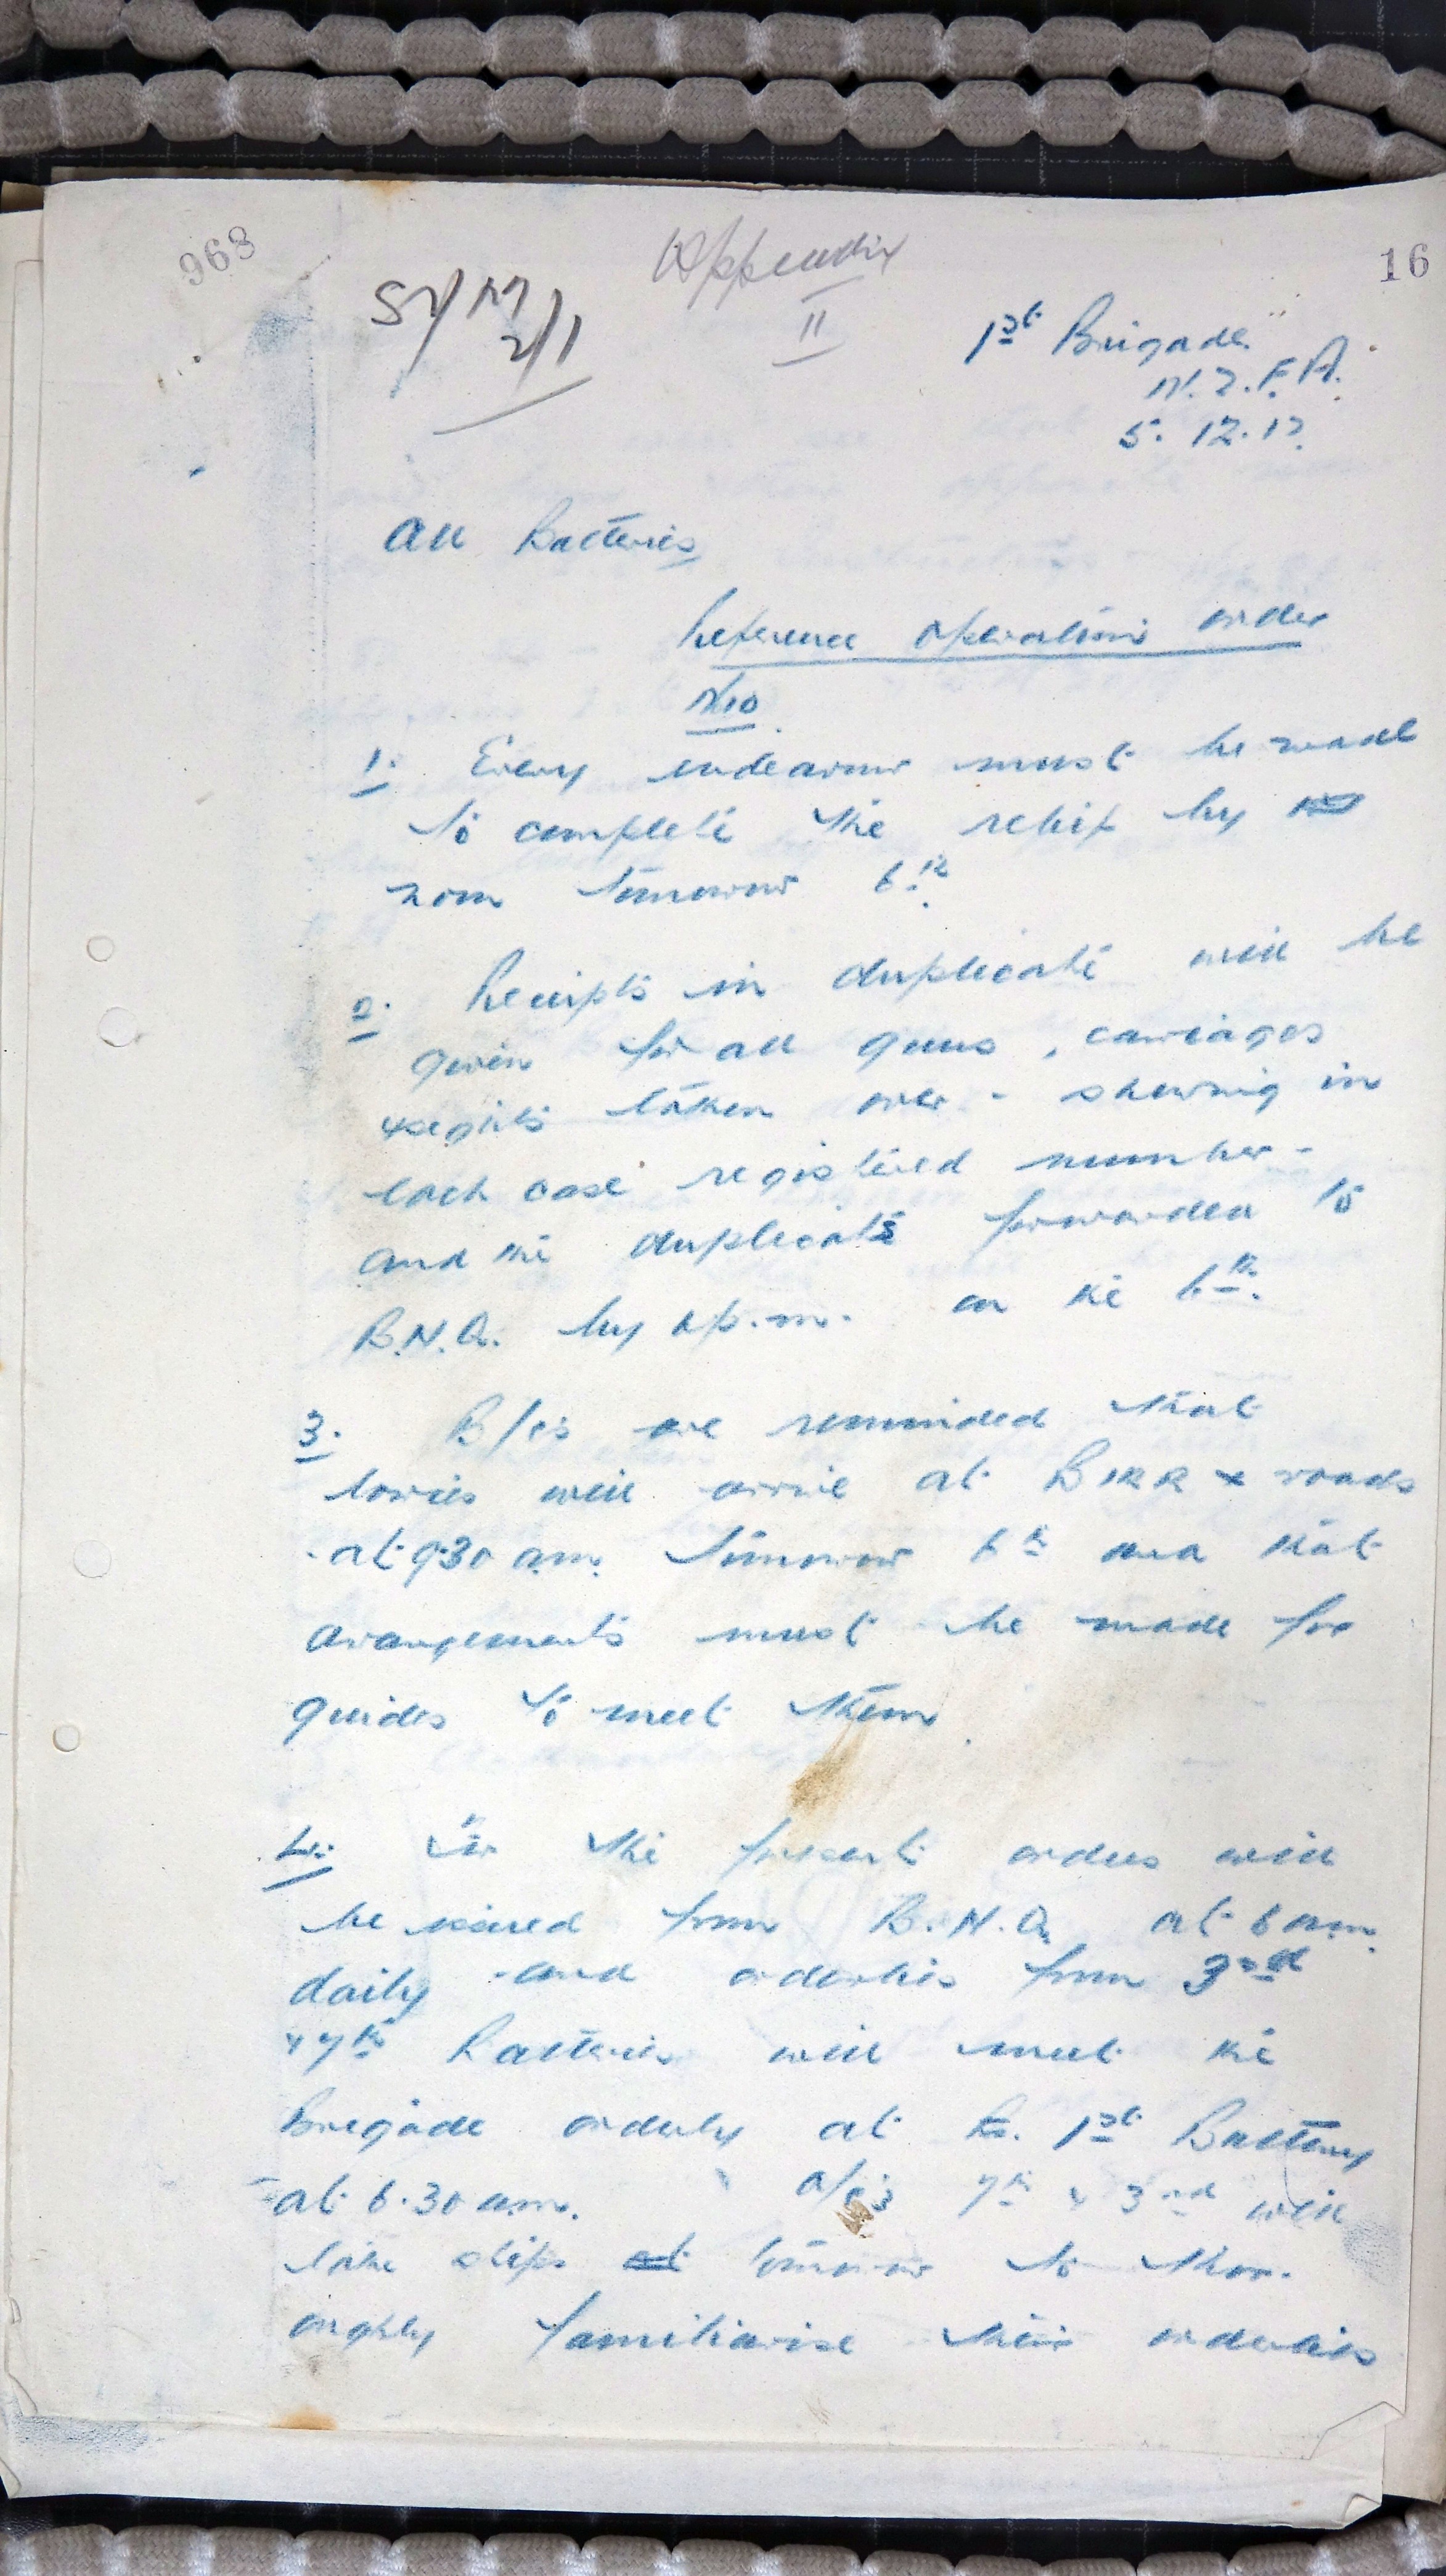 968
16
Appendix
II
SY/M
2/1
1st Brigade
N.Z.F.A.
5.12.17
All Batteries
Reference operation order
No 10
1. Every endeavour must be made
to complete the relief by
noon tomorrow 6th
2. Receipts in duplicate will be
given for all guns, carriages
& sights taken over - shewing in
each case registered number -
and the duplicate forwarded to
B.H.Q. by p.m. on the 6th.
3. B/Cs are reminded that
lorries will arrive at BIRR x roads
at 9.30 am. tomorrow 6th and that
arangements must be made for
guides to meet them.
4. For the present orders will
be issued from B.H.Q. at 6 am.
daily and orderlies from 3rd
& 7th Batteries will meet the
Brigade orderly at 1st Battery
at 6.30 am. O/Cs 7th & 3rd will
take steps at tomorrow to thor-
oughly familiarise their orderlies